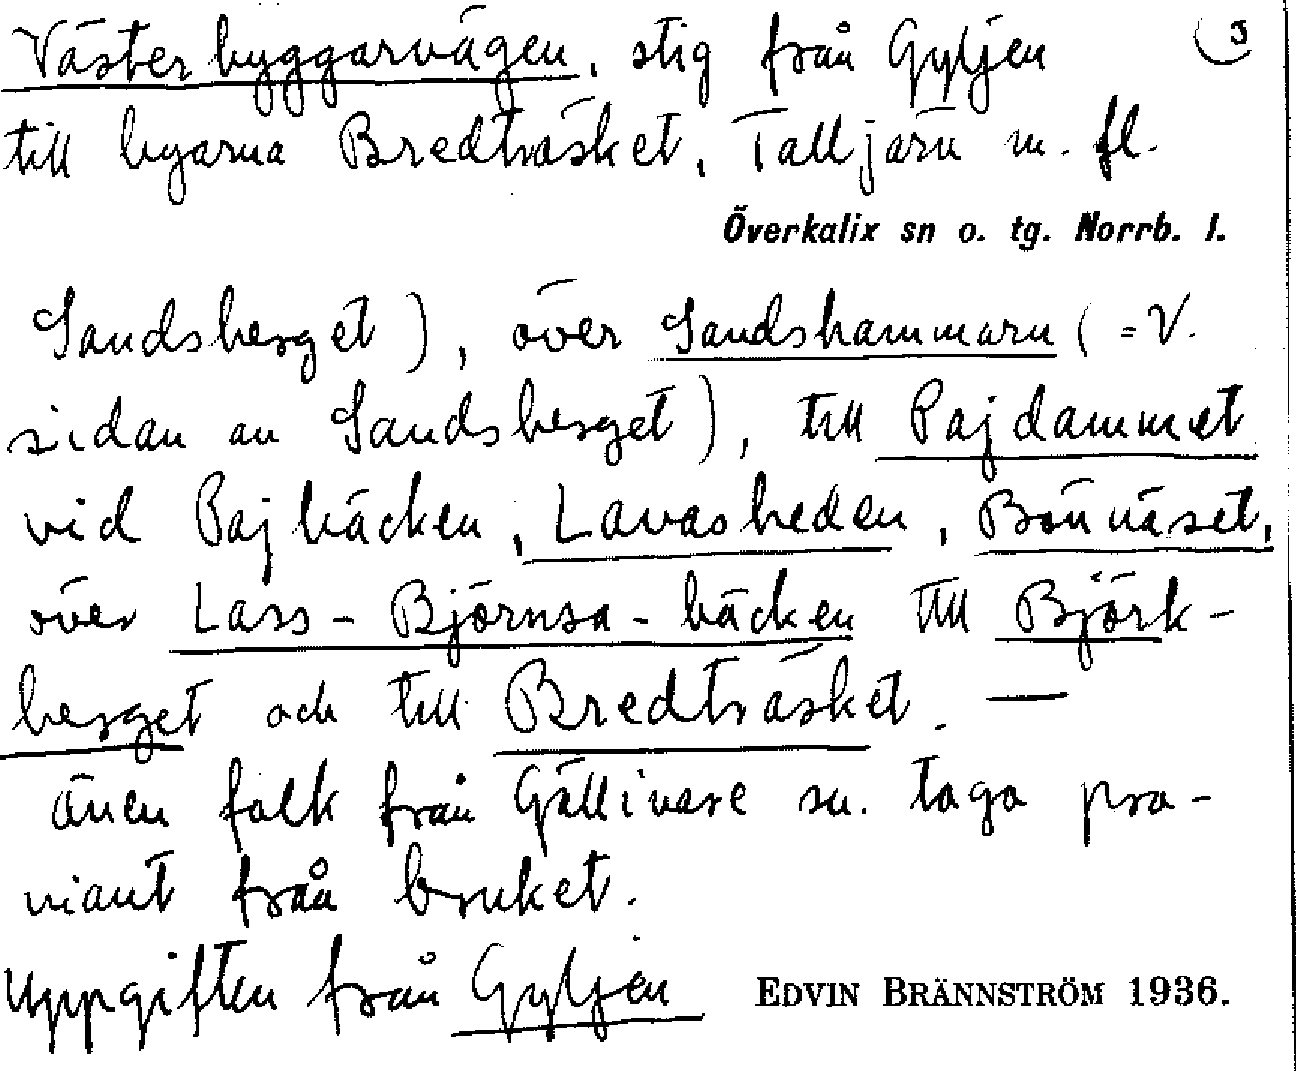 Västerbyggarvägen, stig från Gyljen 3
till byarna Bredträsket, Talljärn m. fl.
Överkalix sn o. tg. Norrb. l.
Sandsberget), över Sandshammarn (=V.
sidan av Sandsberget), till Pajdammet
vid Pajbäcken, Lavasheden, Bönnäset,
över Lass-Björnsa-bäcken till Björk-
berget och till Bredträsket. —
även folk från Gällivare sn. togo pro-
viant från bruket.
Uppgiften från Gyljen EDVIN BRÄNNSTRÖM 1936.